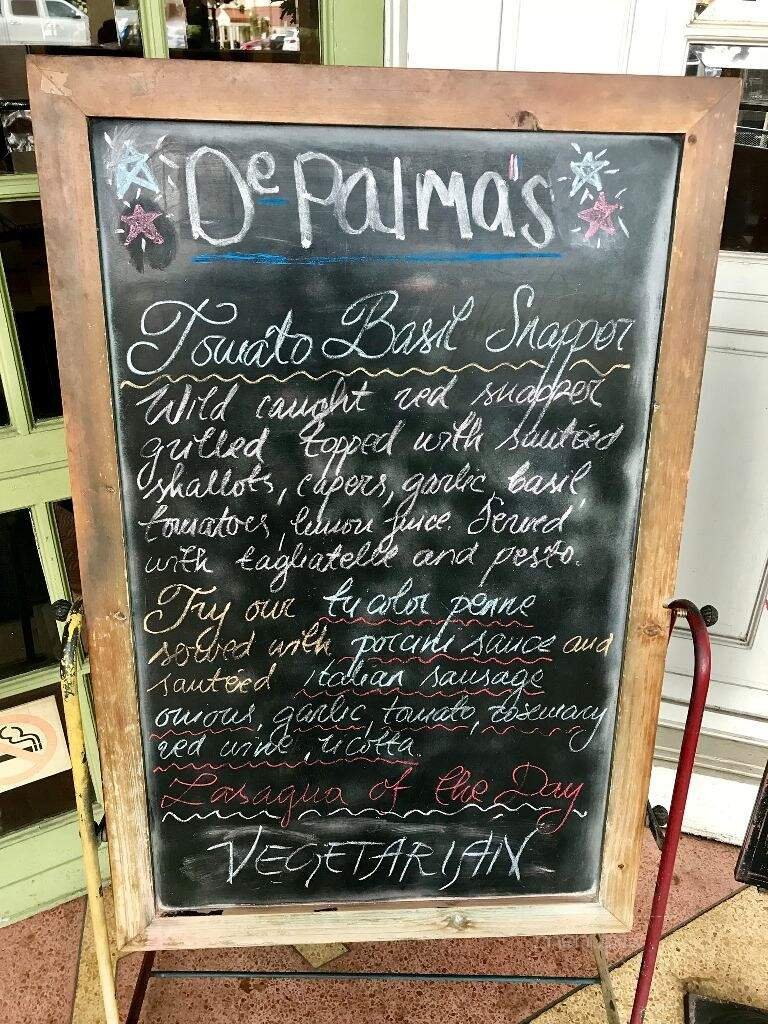 De Palma's
Tomato Basil Snapper
Wild caught red snapper
grilled topped with sautéed
shallots, capers, garlic basil
tomatoes, lemon juice. Served
with tagliatelle and pesto.
Try our tricolor penne
served with porcini sauce and
sautéed italian sausage
onions, garlic, tomato, rosemary
red wine, ricotta.
Lasagna of the Day
VEGETARIAN